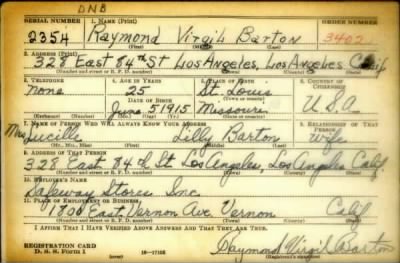 DNB
SERIAL NUMBER 1. NAME (Print) ORDER NUMBER
2354 Raymond Virgil Barton 3402
(First) (Middle) (Last)
2. ADDRESS (Print)
328 East 84th St Los Angeles, Los Angeles Calif
(Number and street or R. F. D. number) (Town) (County) (State)
3. TELEPHONE 4. AGE IN YEARS 5. PLACE OF BIRTH 6. COUNTRY OF CITIZENSHIP
none 25 St. Louis
(Town or county)
DATE OF BIRTH
June 5 1915 Missouri USA
(Exchange) (Number) (Mo.) (Day) (Yr.) (State or country)
7. NAME OF PERSON WHO WILL ALWAYS KNOW YOUR ADDRESS 8. RELATIONSHIP OF THAT PERSON
Mrs Lucille Lilly Barton Wife
(Mr., Mrs., Miss) (First) (Middle) (Last)
9. ADDRESS OF THAT PERSON
328 East 84th St Los Angeles, Los Angeles Calif.
(Number and street or R. F. D. number) (Town) (County) (State)
10. EMPLOYER'S NAME
Safeway Stores Inc
11. PLACE OF EMPLOYMENT OR BUSINESS
1700 East Vernon Ave. Vernon Calif
(Number and street or R. F. D. number) (Town) (County) (State)
I AFFIRM THAT I HAVE VERIFIED ABOVE ANSWERS AND THAT THEY ARE TRUE.
REGISTRATION CARD
D. S. S. Form 1 16-17105 Raymond Virgil Barton
(Registrant's signature)